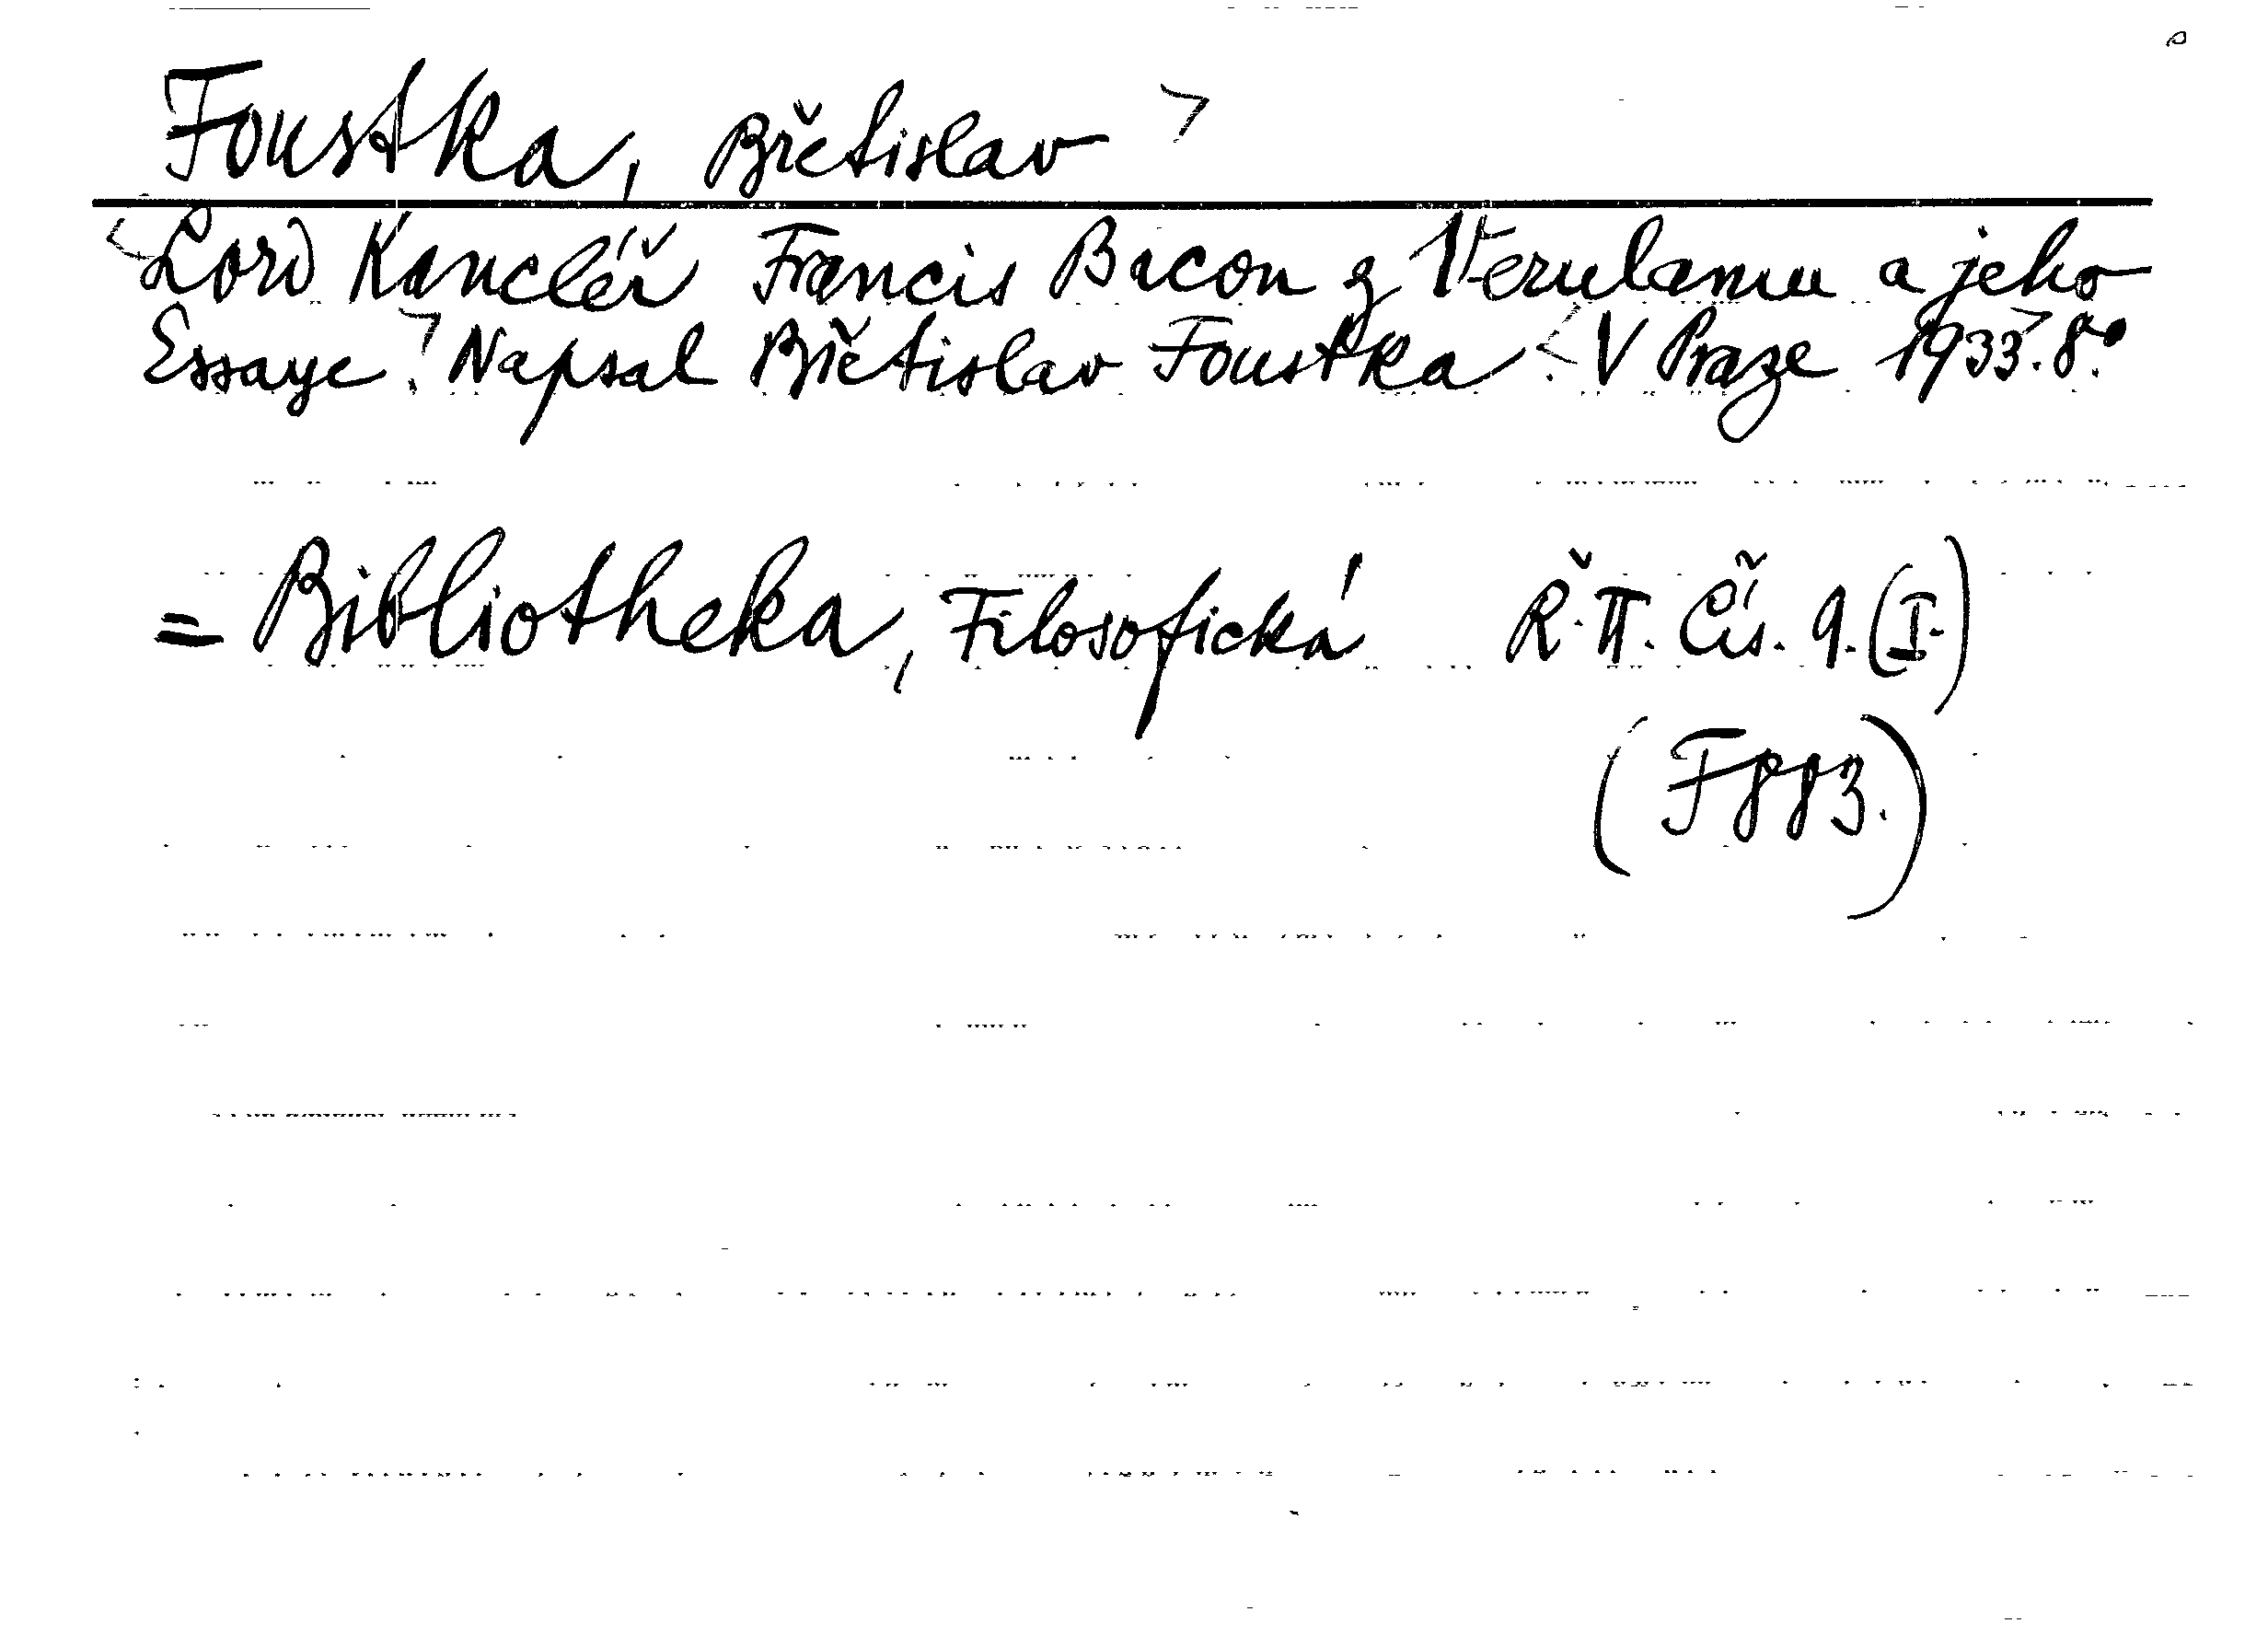 Foustka, Břetislav
Lord Kancléř Francis Bacon z Verulamu a jeho
Essaye. Napsal Břetislav Foustka. V Praze 1933. 8.°
= Bibliotheka, Filosofická Ř. II. Čís. 9. (I.)
(F 883.)